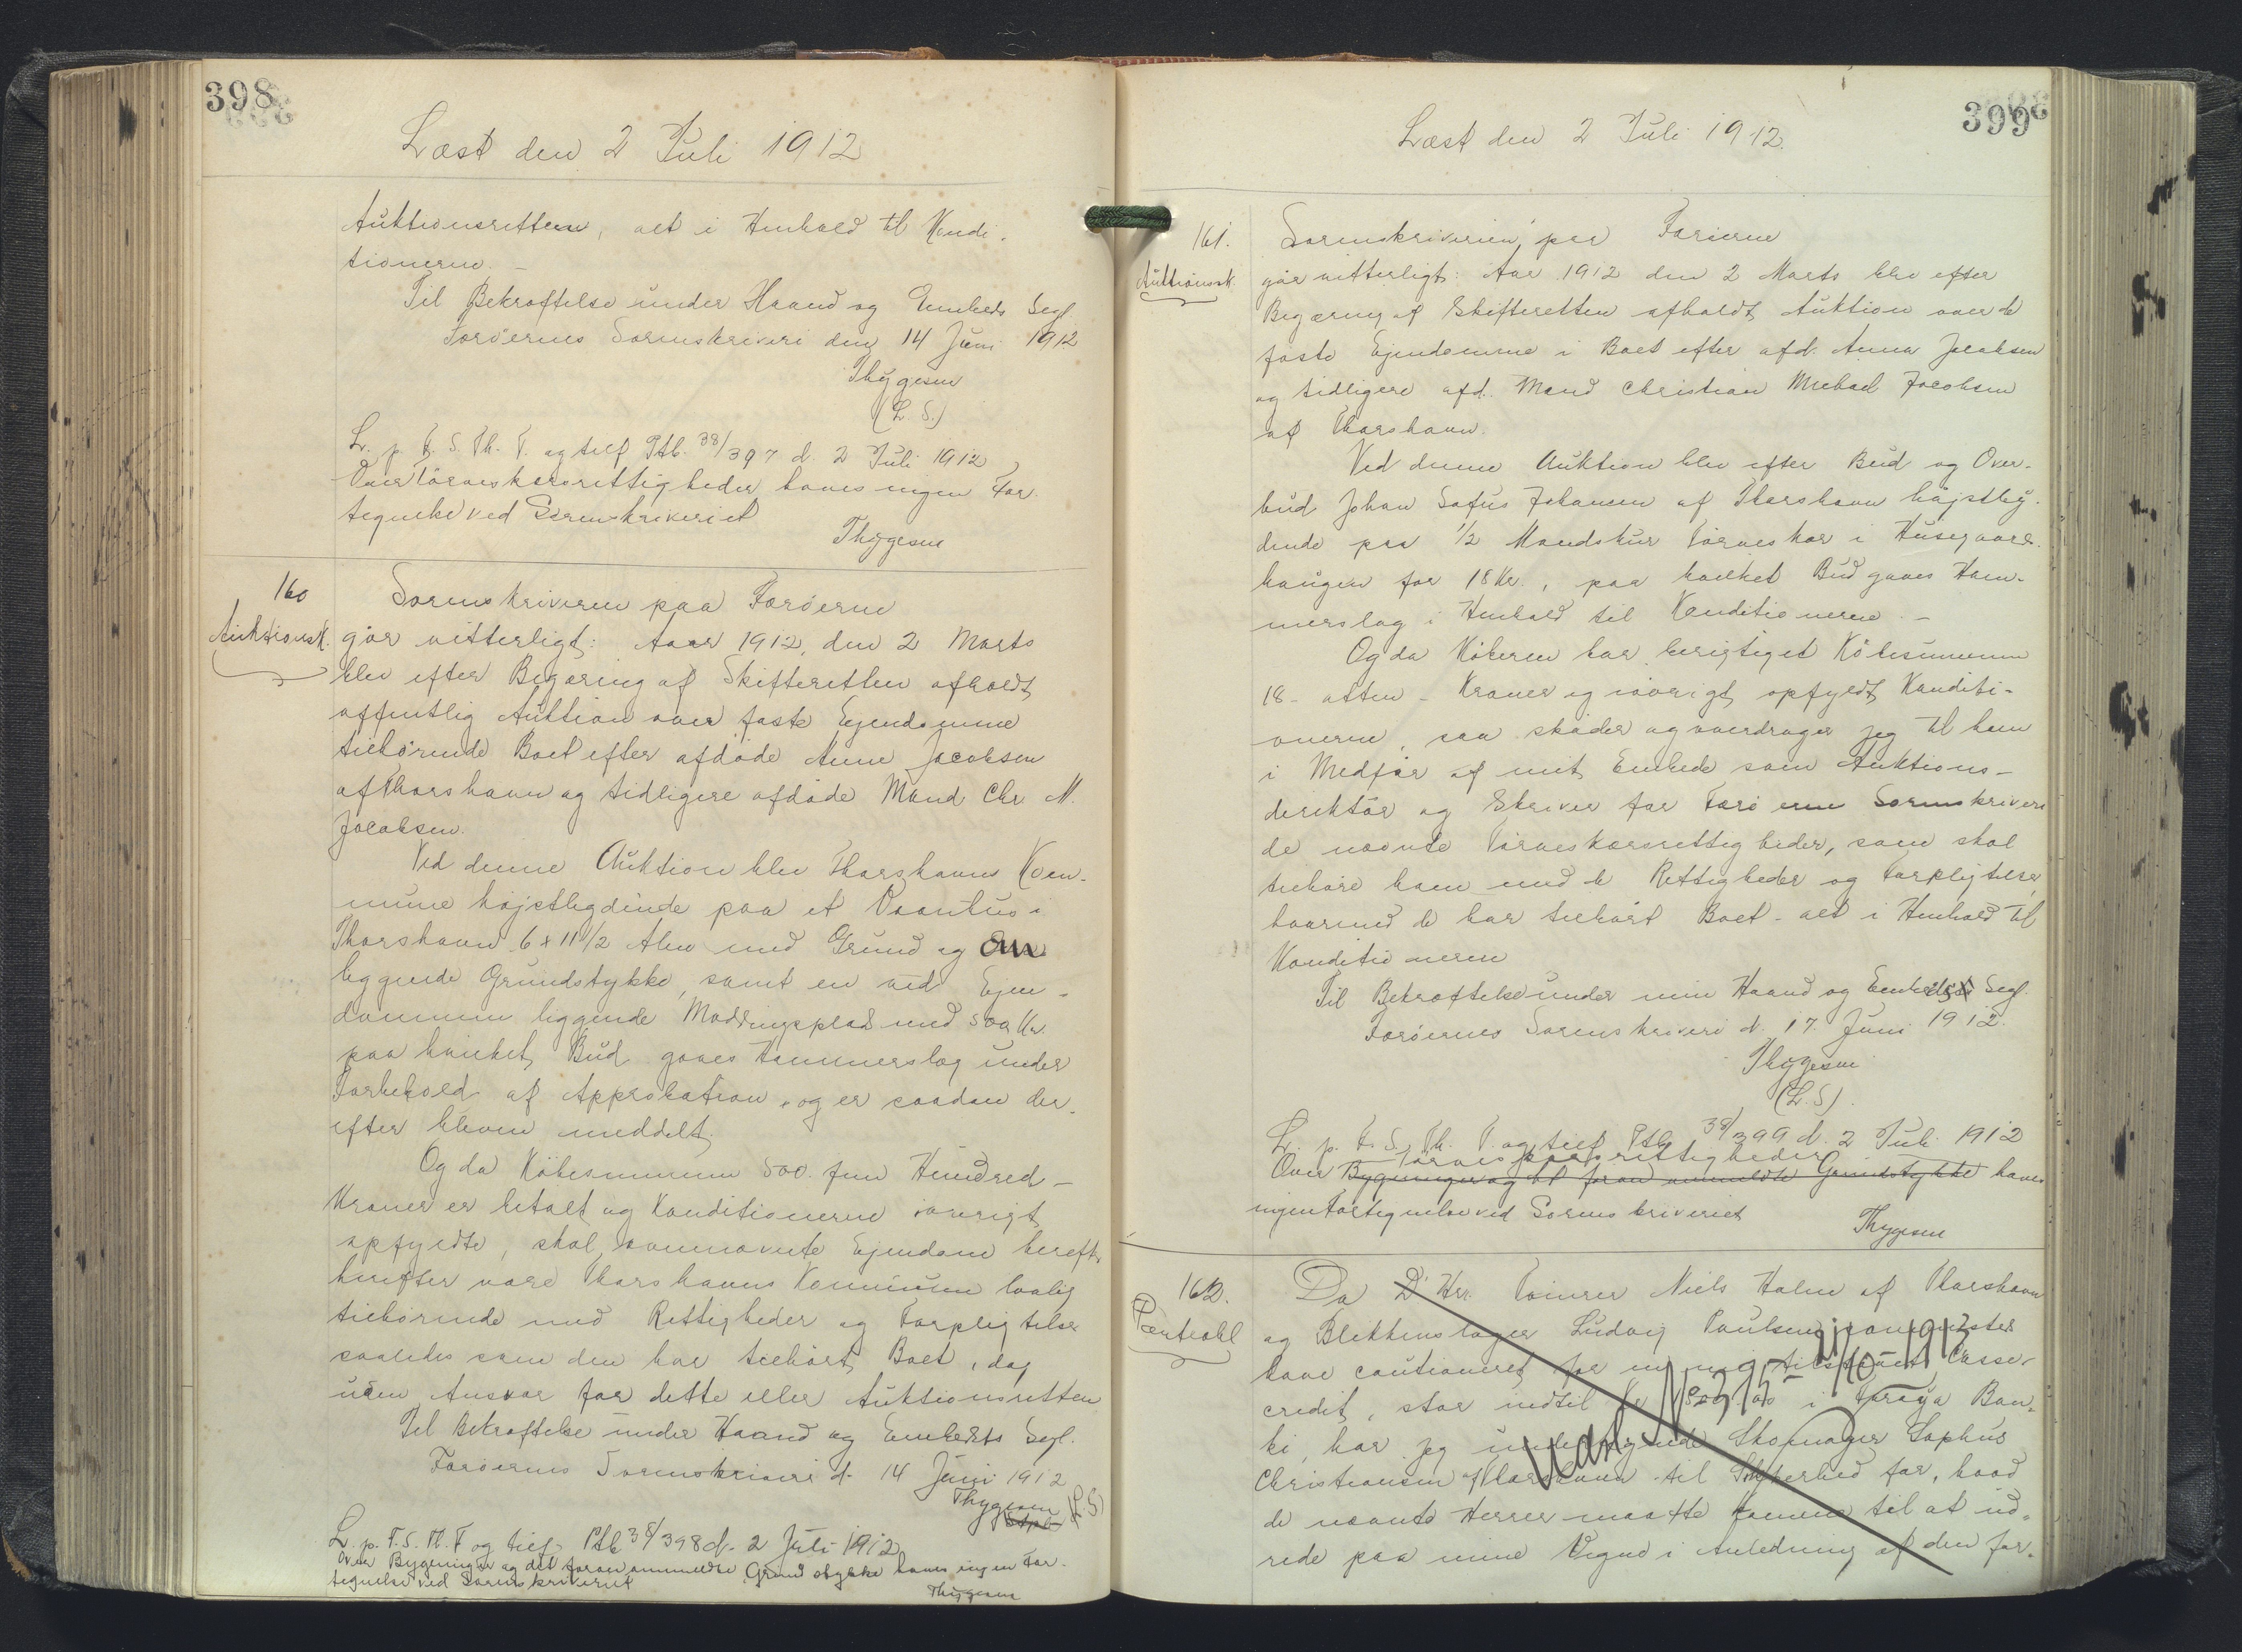 398
Læst den 2 Juli 1912
Auktionsretten, alt i Henhold til Kondi-
tionerne. -
Til Bekræftelse under Haand og Embeds Segl.
Færöernes Sorenskriveri den 14 Juni 1912
Thygesen
(L. S.)
L. p. F. S. Th. T. og tilf Ptb. 38/397 d. 2 Juli 1912
Over Törveskærsrettigheder haves ingen For-
tegnelse ved Sorenskriveriet
Thygesen
160
Auktionsk.
Sorenskriveren paa Færöerne
gör vitterligt: Aaar 1912, den 2 Marts
blev efter Begæring af Skifteretten afholdt
offentlig Auktion over faste Ejendomme
tilhörende Boet efter afdöde Anne Jacobsen
af Thorshavn og tidligere afdöde Mand Chr. M.
Jacobsen.
Ved denne Auktion blev Thorshavns Kom-
mune højstbydende paa et Vaanhus i
Thorshavn 6 x 11 1/2 Alen med Grund og Om
liggende Grundstykke, samt en ved Ejen-
dommen liggende Møddingsplads med 500 Kr.
paa hvilket Bud gaves Hammerslag under
Forbehold af Approbation, og er saadan der-
efter bleven meddelt.
Og da Köbesummen 500. fem Hundred -
Kroner er betalt og Konditionerne iövrigt
opfyldte, skal ovennævnte Ejendom hereft.
herefter være Thorshavns Kommune lovlig
tilhörende med Rettigheder og Forpligtelser
saaledes som den har tilhört Boet, dog
uden Ansvar for dette eller Auktionsretten
Til Bekræftelse under Haand og Embedets Segl.
Færöernes Sorenskriveri d. 14 Juni 1912
Thygesen (L. S)
L. p. F. S. Th. T og tilf. Ptb 38/398 d. 2 Juli 1912
Over Bygninger og det foran ommeldte Grundstykke haves ingen For-
tegnelse ved Sorenskriveriet
Thygesen
399
Læst den 2 Juli 1912.
161.
Auktionssk.
Sorenskriveren paa Færöerne
gör vitterligt: Aar 1912 den 2 Marts blev efter
Begæring af Skifteretten afholdt Auktion over de
faste Ejendomme i Boet efter afd. Anna Jacobsen
og tidligere afd. Mand Christian Michael Jacobsen
af Thorshavn.
Ved denne Auktion blev efter Bud og Over-
bud Johan Sofus Johansen af Thorshavn højstby-
dende paa 1/2 Mandskur Törveskær i Husegaards-
haugen for 18 Kr., paa hvilket Bud gaves Ham-
merslag i Henhold til Konditionerne. -
Og da Köberen har berigtiget Köbesummen
18 - atten - Kroner og iövrigt opfyldt Konditi-
onerne, saa sköder og overdrager jeg til ham
i Medför af mit Embede som Auktions-
direktör og Skriver for Færöerne Sorenskriveri
de nævnte Törveskærsrettigheder, som skal
tilhöre ham med de Rettigheder og Forpligtelser
hvormed de har tilhört Boet - alt i Henhold til
Konditionerne
Til Bekræftelse under min Haand og Embedets Segl.
Færöernes Sorenskriveri d. 17. Juni 1912.
Thygesen
(L. S).
L. p. F. S. Th. T. og tilf Ptb 38/399 d. 2 Juli 1912
Törveskærsrettigheder
Over Bygninger og det foran ommeldte Grundstykke haves
ingen Fortegnelse ved Sorenskriveriet
Thygesen
162.
Panteobl
Da D' Hrr. Toimrer Niels Holm af Thorshavn
og Blikkenslager Ludvig Poulsen
have cautioneret for en mig tilstaaet Casse-
credit, stor indtil Kr i Föroya Ban-
ki, har jeg undertegnede Skomager Sophus
Christiansen af Thorshavn til Sikkerhed for, hvad
de nævnte Herrer maatte komme til at ud-
rede paa mine Vegne i Anledning af den for-